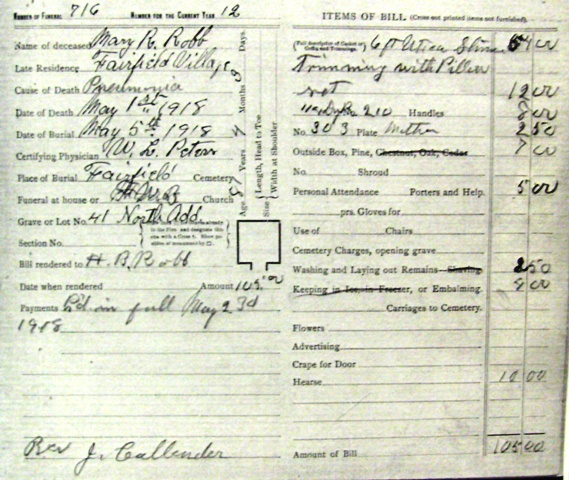 NUMBER OF FUNERAL 716 NUMBER FOR THE CURRENT YEAR 12
Name of deceased Mary R. Robb
Late Residence Fairfield Village
Cause of Death Pneumonia
Date of Death May 1st 1918
Date of Burial May 5th 1918
Certifying Physician W. L. Peters
Place of Burial Fairfield Cemetery
Funeral at house or Church
Grave or Lot No. 41 North Add.
Section No.
Bill rendered to H. B. Robb
Date when rendered Amount 105.00
Payments Pd in full May 23d
1918
Rev J. Callender
Age Years Months Days.
Size Length, Head to Toe
Width at Shoulder
ITEMS OF BILL (Cross out printed items not furnished).
6 ft Utica 54 00
Trimming with Pillow
12 00
210 Handles 8 00
No. 303 Plate Mother 2 50
Outside Box, Pine, Chestnut, Oak, Cedar 7 00
No. Shroud
Personal Attendance Porters and Help. 5 00
prs. Gloves for
Use of Chairs
Cemetery Charges, opening grave
Washing and Laying out Remains Shaving 2 50
Keeping in Ice in Freezer, or Embalming. 8 00
Carriages to Cemetery.
Flowers
Advertising
Crape for Door
Hearse 10 00
Amount of Bill 105 00